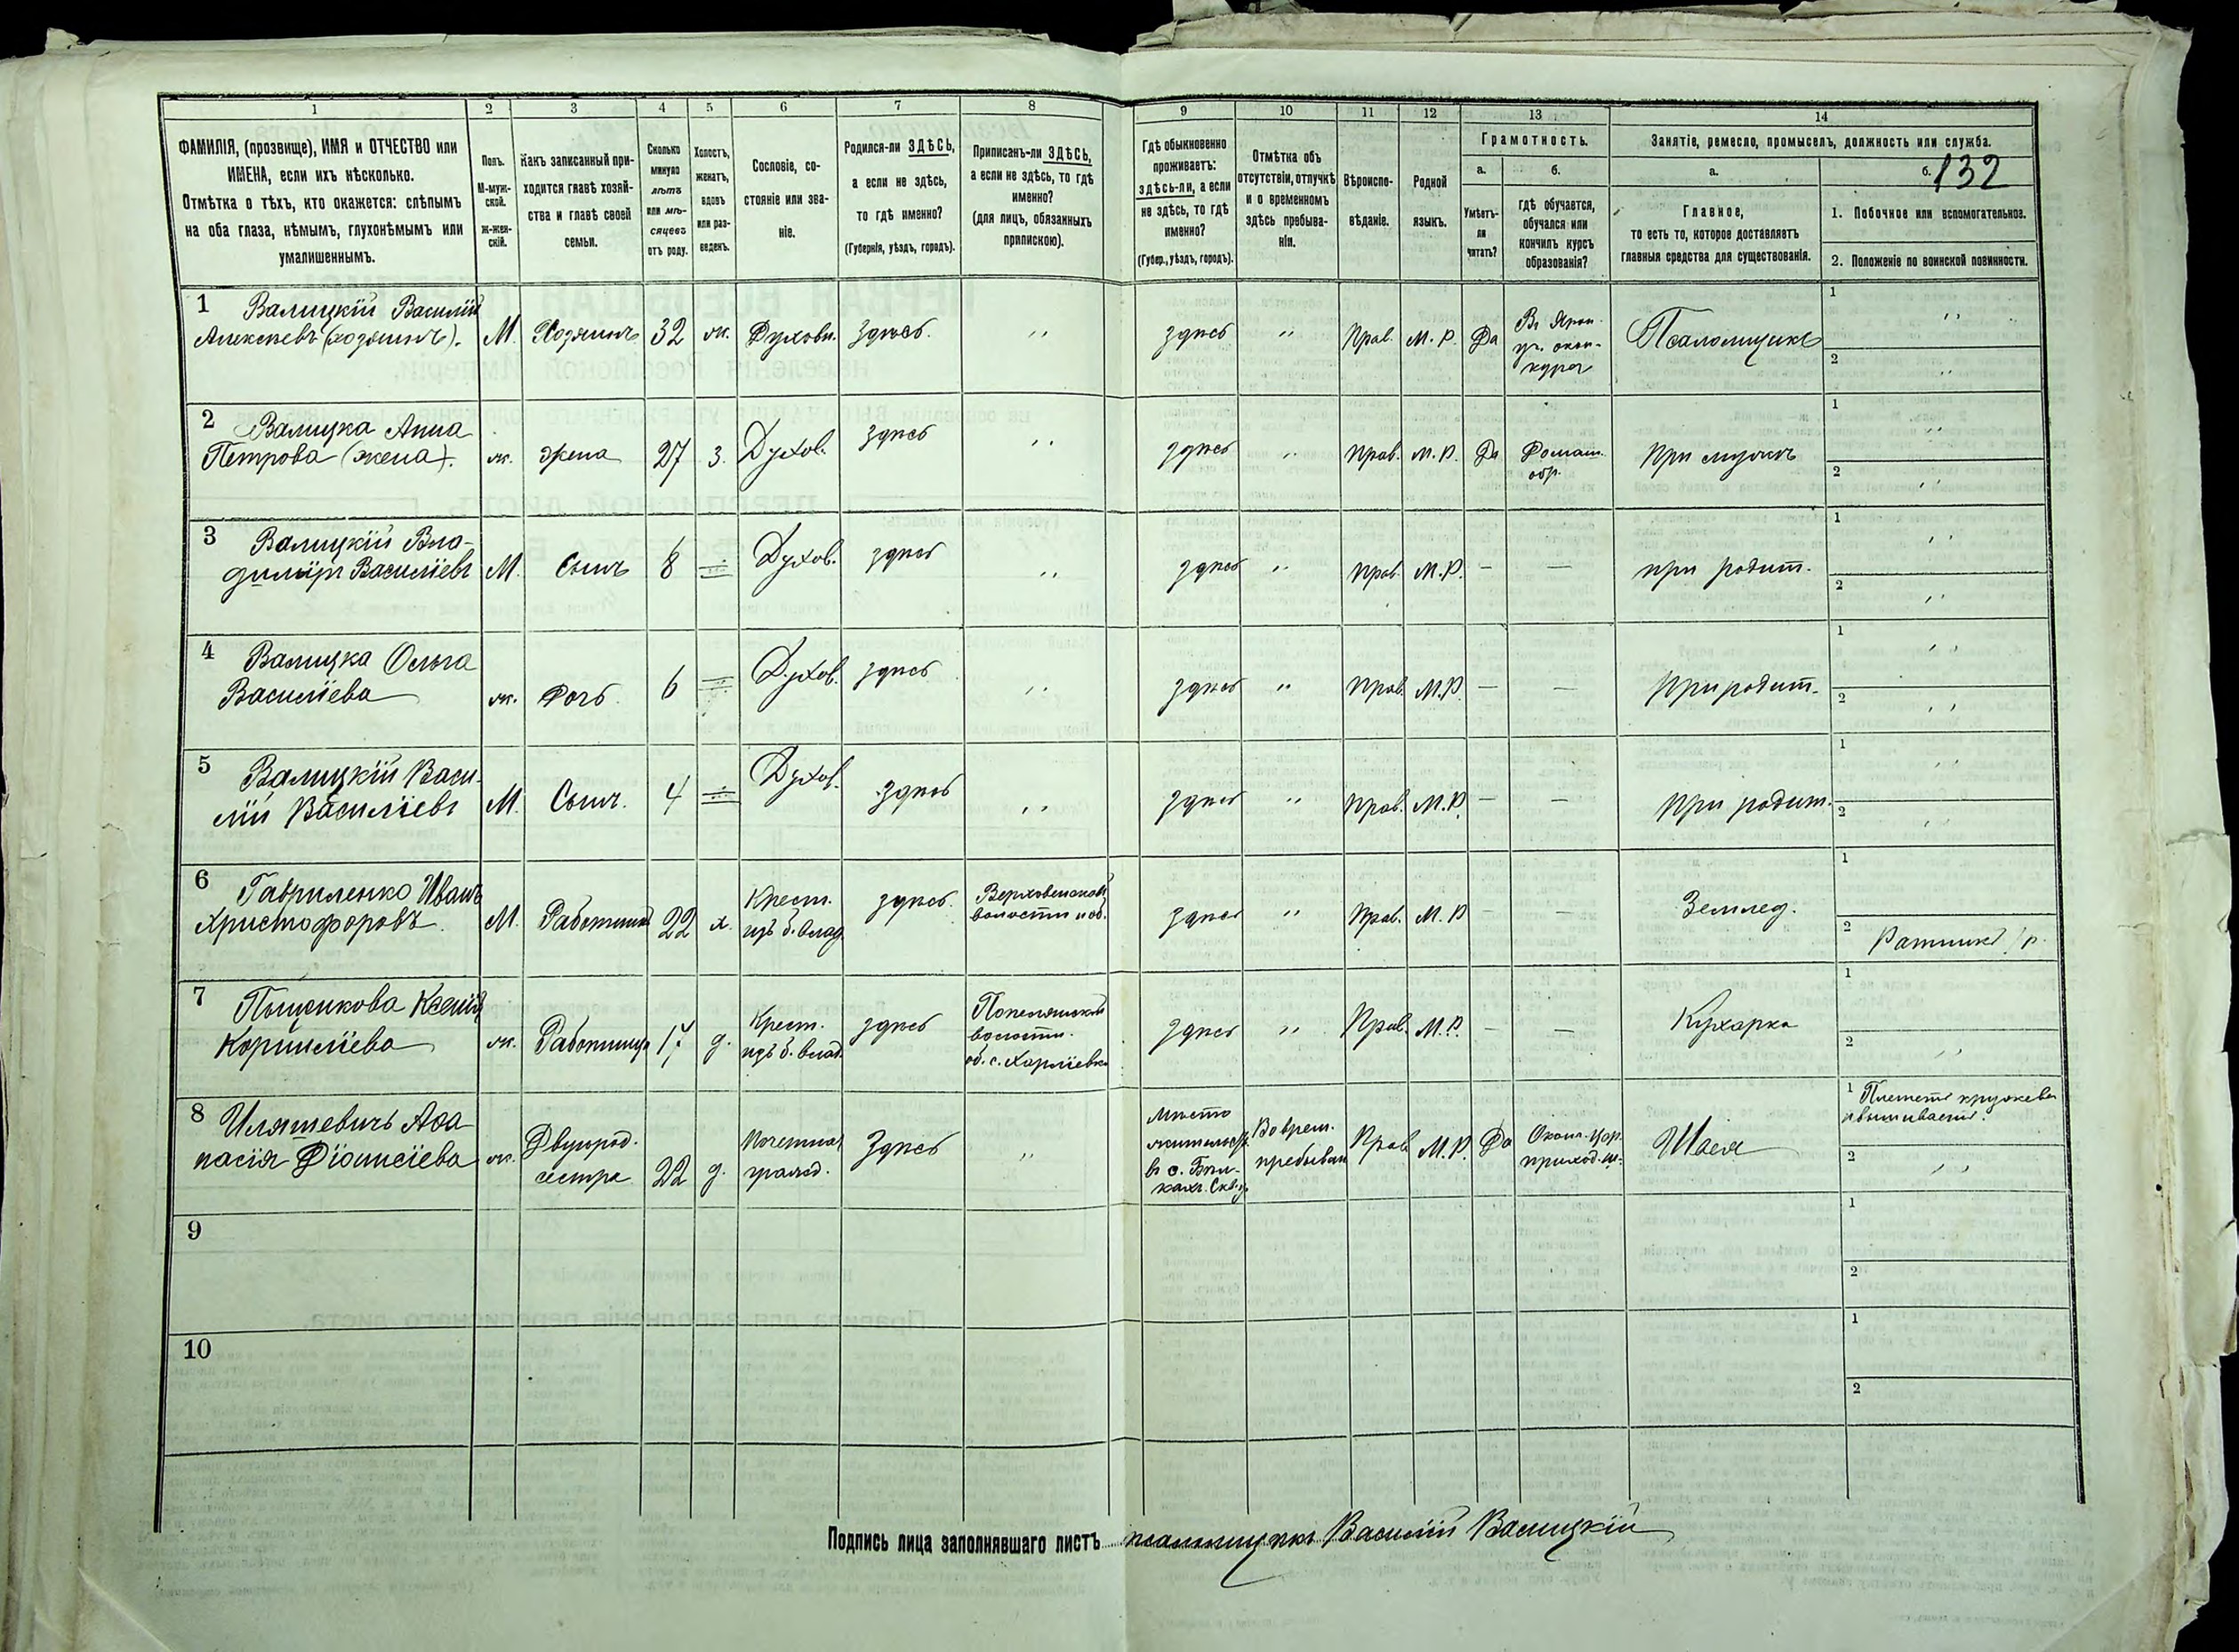 1 2 3 4 5 6 7 8 9 10 11 12 13 14
ФАМИЛІЯ, (прозвище), ИМЯ и ОТЧЕСТВО или
ИМЕНА, если ихъ нѣсколько.
Отмѣтка о тѣхъ, кто окажется: слѣпымъ
на оба глаза, нѣмымъ, глухонѣмымъ или
умалишеннымъ.
Полъ.
М-муж-
ской.
ж-жен-
скій.
Какъ записанный при-
ходится главѣ хозяй-
ства и главѣ своей
семьи.
Сколько
минуло
лѣтъ
или мѣ-
сяцевъ
отъ роду.
Холостъ,
женатъ,
вдовъ
или раз-
веденъ.
Сословіе, со-
стояніе или зва-
ніе.
Родился-ли ЗДѢСЬ,
а если не здѣсь,
то гдѣ именно?
(Губернія, уѣздъ, городъ).
Приписанъ-ли ЗДѢСЬ,
а если не здѣсь, то гдѣ
именно?
(для лицъ, обязанныхъ
припискою).
Гдѣ обыкновенно
проживаетъ:
здѣсь-ли, а если
не здѣсь, то гдѣ
именно?
(Губер., уѣздъ, городъ).
Отмѣтка объ
отсутствіи, отлучкѣ
и о временномъ
здѣсь пребыва-
ніи.
Вѣроиспо-
вѣданіе.
Родной
языкъ.
Грамотность.
а.
Умѣетъ-
ли
читать?
б.
гдѣ обучается,
обучался или
кончилъ курсъ
образованія?
Занятіе, ремесло, промыселъ, должность или служба.
а.
Главное,
то есть то, которое доставляетъ
главныя средства для существованія.
б. 132
1. Побочное или вспомогательное.
2. Положеніе по воинской повинности.
1 Валицкій Василій
Алексѣевъ (хозяинъ).
М. Хозяинъ 32 ж. Духовн. здѣсь. " здѣсь " Прав. М. Р. Да
курсъ
Псаломщикъ
1 "
2 "
2 Валицка Анна
Петрова (жена).
ж. жена 27 з. Духов. здѣсь " здѣсь " Прав. М. Р. Да
Домаш.
обр.
При мужѣ
1 "
2 "
3 Валицкій Вла-
диміръ Василіевъ
М. Сынъ 8 = Духов. здѣсь " здѣсь " Прав. М. Р. — — при родит.
1 "
2 "
4 Валицка Ольга
Василіева
ж. Дочь 6 = Духов. здѣсь " здѣсь " Прав. М. Р. — — при родит.
1 "
2 "
5 Валицкій Васи-
лій Василіевъ
М. Сынъ. 4 = Духов. здѣсь " здѣсь " Прав. М. Р. — — при родит.
1 "
2 "
6 Гавриленко Иванъ
Христофоровъ.
М. Работникъ 22 х.
Крест.
изъ б. влад.
здѣсь.
волости
здѣсь " Прав. М. Р. — — Землед.
1
2 Ратникъ
7 Пыщикова Ксенія
Корниліева
ж. Работница 17 д.
Крест.
изъ б. влад.
здѣсь
волости.
об. с. Харліевка
здѣсь " Прав. М. Р. — — Кухарка
1
2 "
8 Иляшевичъ Аѳа-
насія Діонисіева
ж.
Двуюрод.
сестра
22 д.
Почетная
гражд.
Здѣсь "
Мѣсто
жительст.
Во врем.
пребыван.
Прав. М. Р. Да
Оконч. Цер.
приход. ш.
Швея
1 Плететъ кружева
и вышиваетъ.
2 "
9
1
2
10
1
2
Подпись лица заполнявшаго листъ псаломщикъ Василій Валицкій